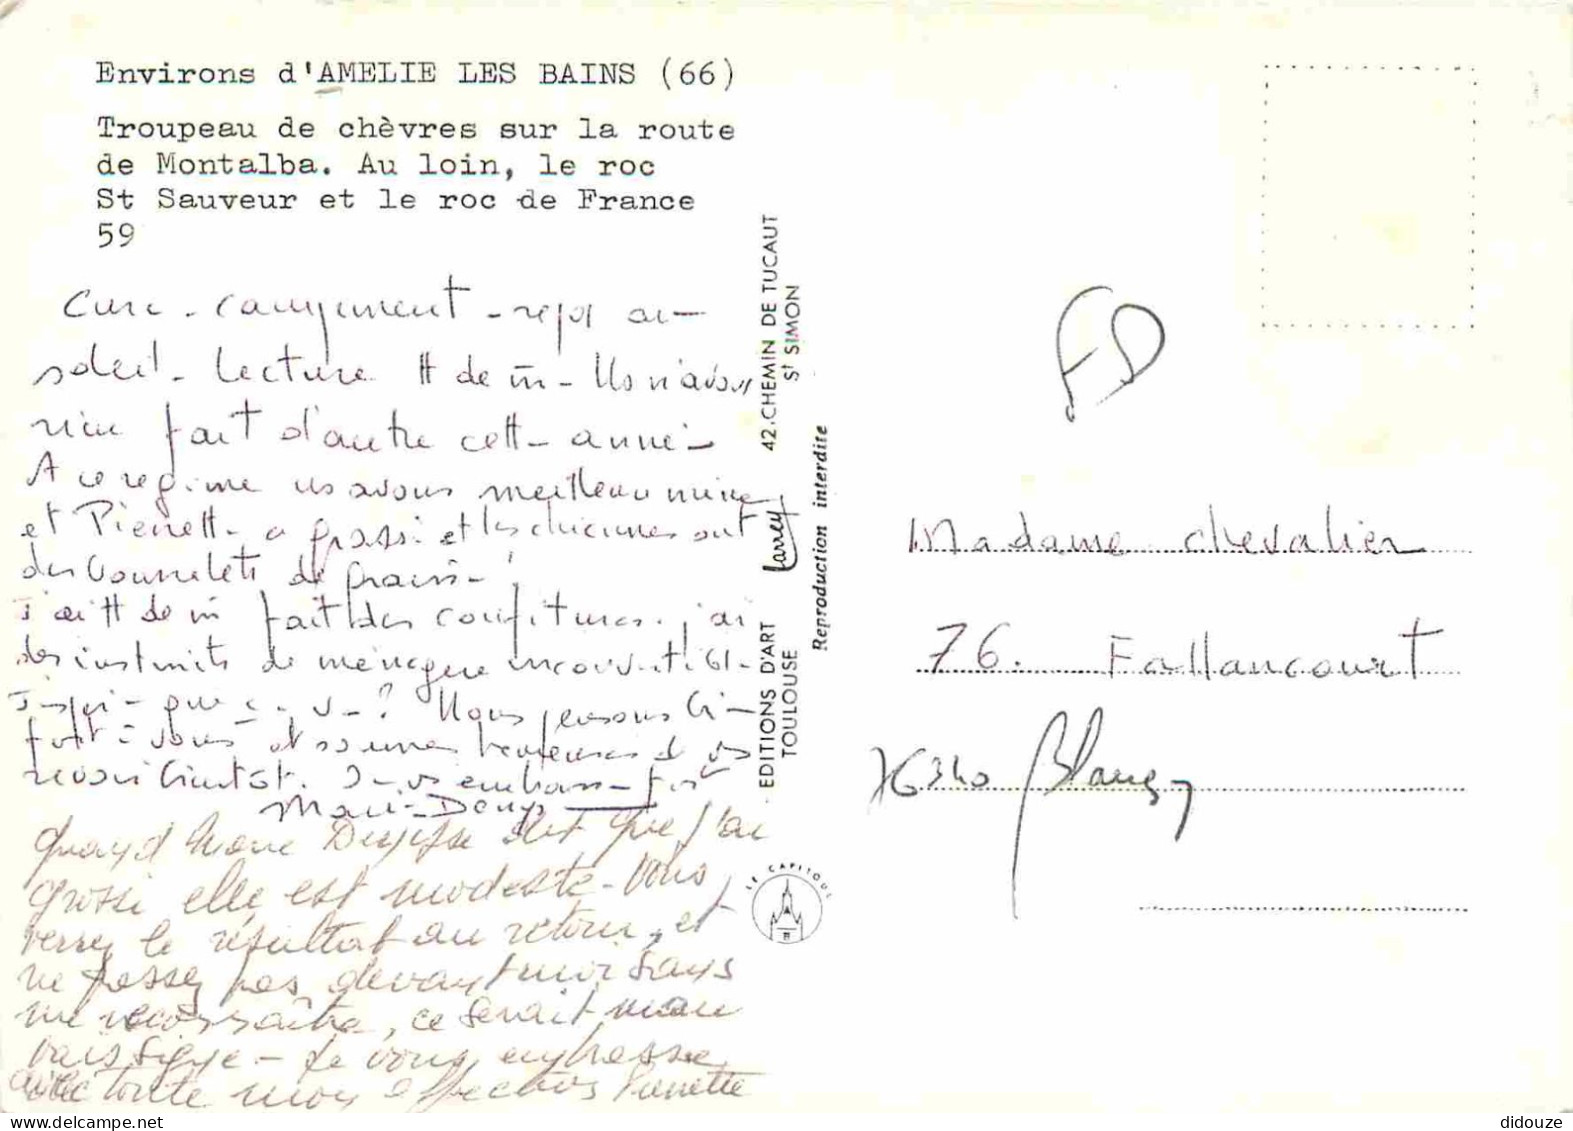 Environs d'AMELIE LES BAINS (66)
Troupeau de chèvres sur la route
de Montalba. Au loin, le roc
St Sauveur et le roc de France
59
Cure - campement - repos au
soleil - lecture tt de m̄ - Ns n'avons
rien fait d'autre cett- anné-
A ce régime ns avons meilleure mine
et Pierrett- a grossi et les chiennes ont
des bourrelets de graiss- !
J'ai tt de m̄ fait des confitures. j'ai
des instincts de ménagère
que ç- v- ? Nous pensons bi-
fort à vous et sommes heureuses de vs
revoir bientot. J- vs embrass- fort
Mari-Denys-
Quand Marie Denyse dit que j'ai
grossi elle est modeste - Vous
verrez le résultat au retour, et
ne passez pas devant moi sans
me reconnaître, ce serait mau
vais signe - Je vous embrasse
avec toute mon affection Pierrette
EDITIONS D'ART Larrey 42.CHEMIN DE TUCAUT
TOULOUSE St SIMON
Reproduction interdite
LE CAPITOUL
FD
Madame Chevalier
76. Fallancourt
76340 Blangy
didouze